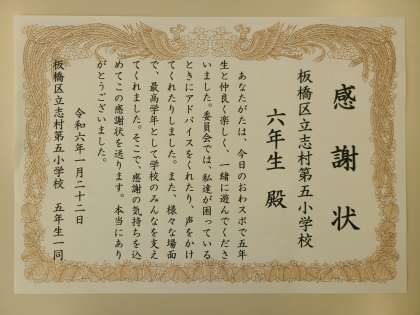 感謝状
板橋区立志村第五小学校
六年生 殿
あなたがたは、今日のおわスポで五年
生と仲良く楽しく、一緒に遊んでくださ
いました。委員会では、私達が困っている
ときにアドバイスをくれたり、声をかけ
てくれたりしました。また、様々な場面
で、最高学年として学校のみんなを支え
てくれました。そこで、感謝の気持ちを込
めてこの感謝状を送ります。本当にあり
がとうございました。
令和六年一月二十二日
板橋区立志村第五小学校 五年生一同